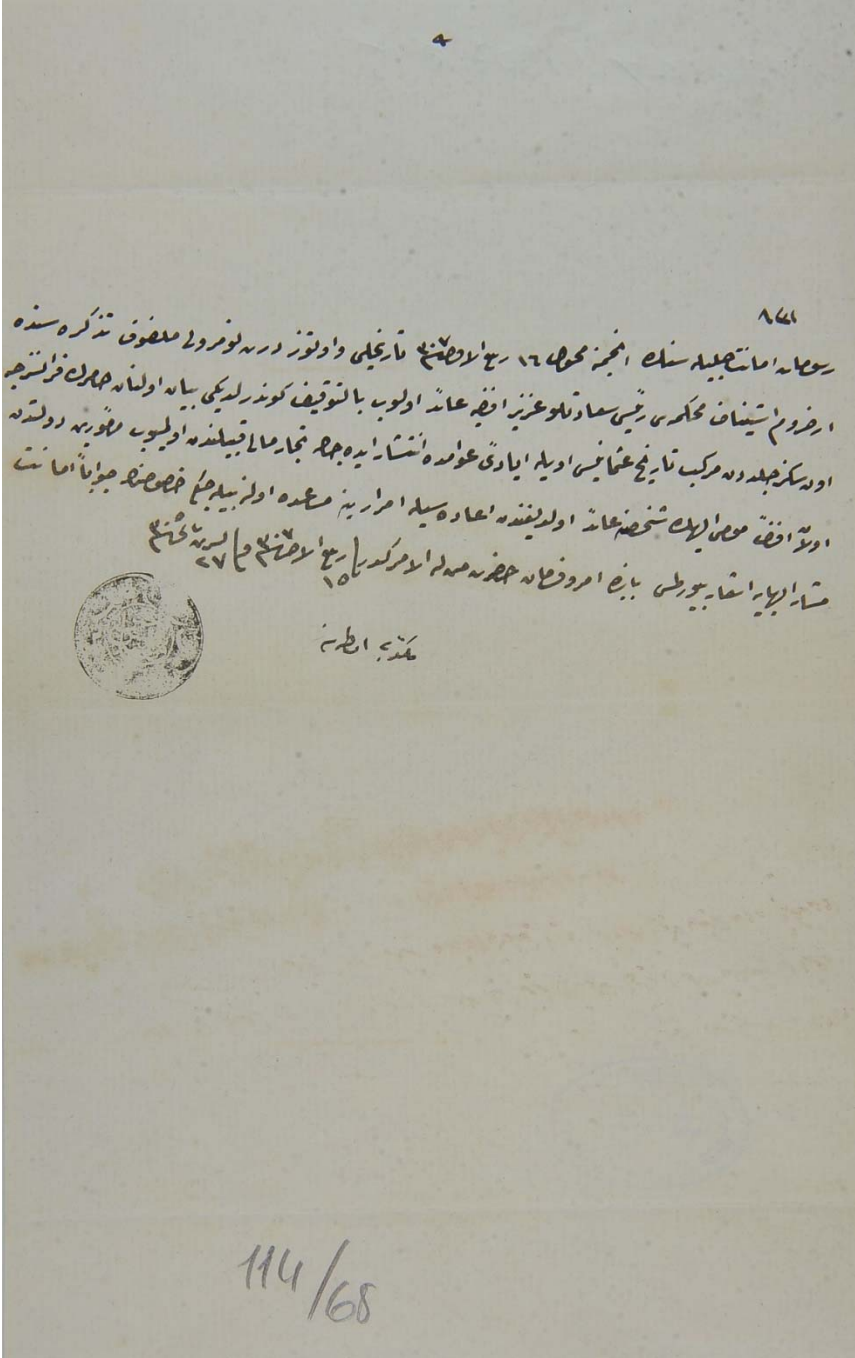 رسومات امانت جلیله‌سنك انجمنه محول ١٦ ربیع الاول ٣٠٧ تاریخلی و اوتوز درت نومرولی ملفوف تذكره‌سنده
ارضروم استیناف محكمه‌سی رئیسی سعادتلو عزیز افندی‌یه عائد اولوب بالتوقیف كوندرلدیكی بیان اولنان فرانسزجه
اون سكز جلددن مركب تاریخ عثمانیسی اویله ایادئ عوامده انتشار ایده‌جك تجار مالی قبیلندن اولمیوب مأمورین دولتدن
اولان افندئ مومی الیهك شخصنه عائد اولدیغندن اعاده‌سیله امرارینه مساعده اولنه‌بیله‌جكی خصوصنك جواباً امانت
مشار الیهایه اشعار بیورلمسی بابنده امر و فرمان حضرت من له الامركدر ١٥ ربیع الاخر ٣٠٧ و ٢٧ تشرین ثانی ٣٠٥
114/68